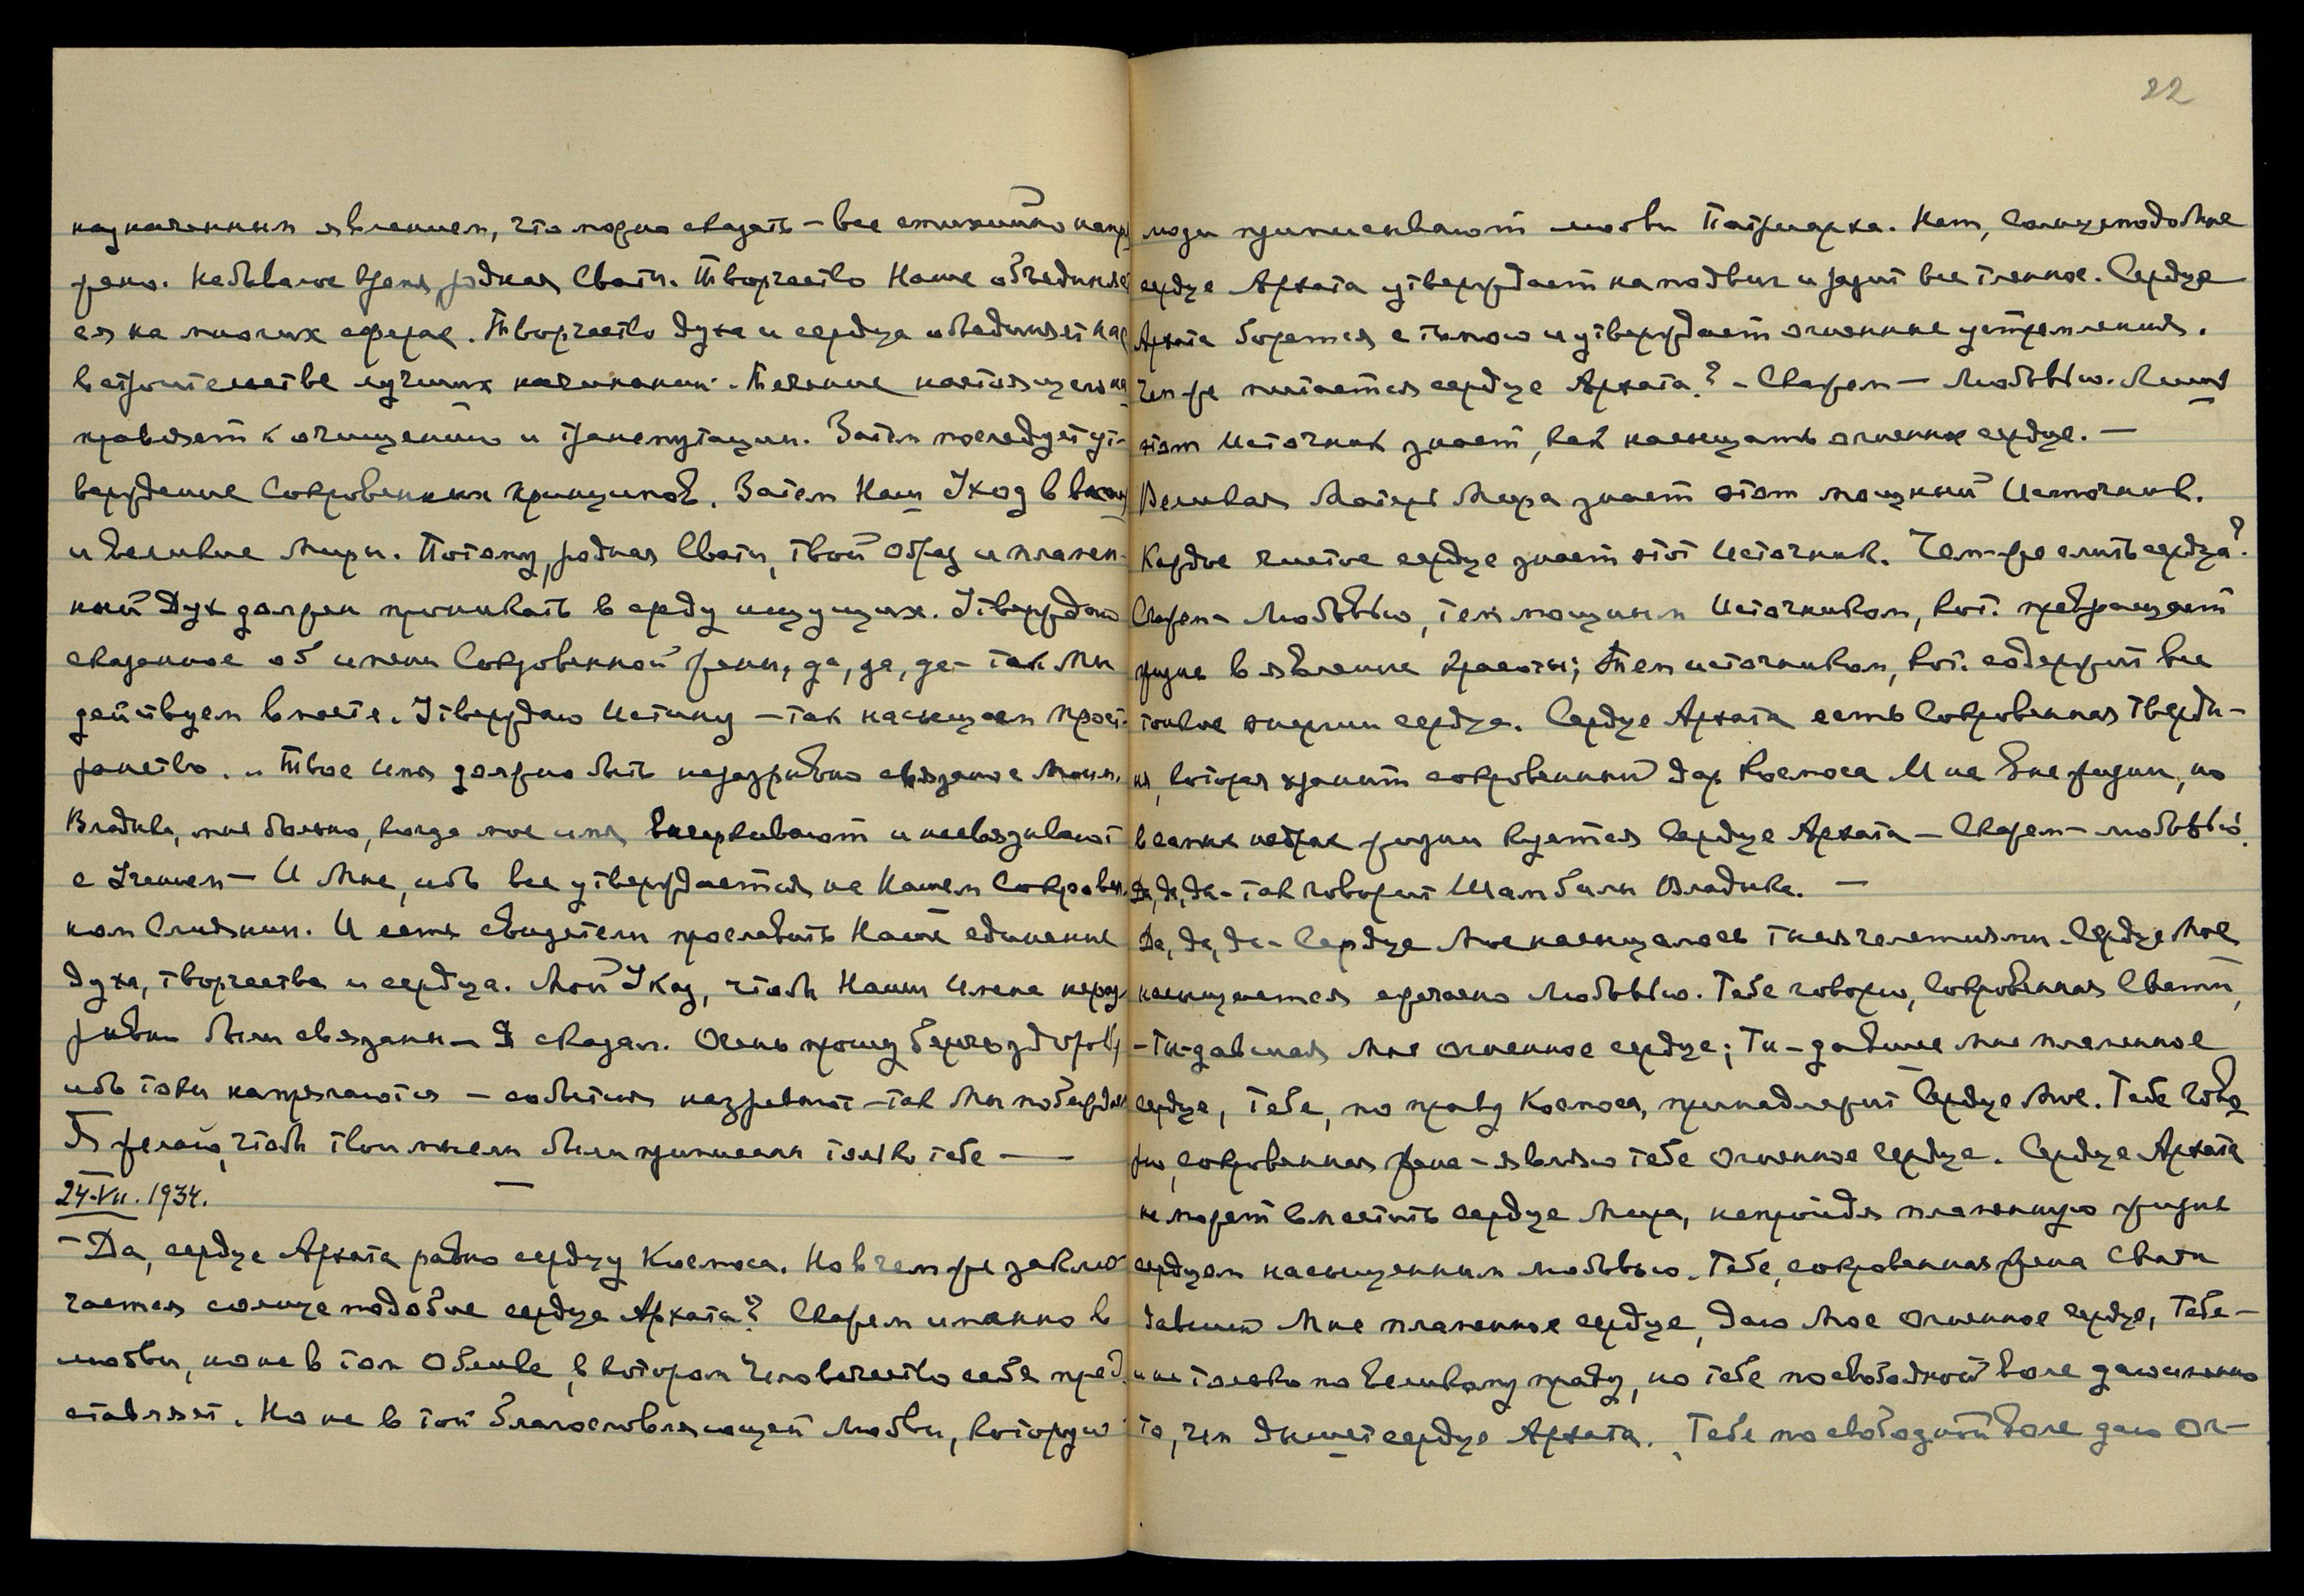 назначенным явлением, что можно сказать — все стихийно напр
жено. Небывалое время, родная Свати. Творчество Наше объединяе
ся на многих сферах. Творчество духа и сердца объединяет нас
в строительстве лучших начинаний. Течение настоящего на
правляет к очищению и трансмутации. Затем последует ут-
верждение Сокровенных принципов. Затем Наш Уход в
и великие Миры. Потому, родная Свати, твой Образ и пламен-
ный Дух должен проникать в среду ищущих. Утверждаю
сказанное об имени Сокровенной жены, да, да, да — так Мы
действуем вместе. Утверждаю Истину — так насыщаем прост-
ранство. .. Твое имя должно быть неразрывно связано с Моим.
Владыка, мне больно, когда мое имя вычеркивают и не связывают
с Учением — И Мне, ибо все утверждается на Нашем Сокровен-
ном Слиянии. И есть свидетели прославить Наше единение
духа, творчества и сердца. Мой Указ, чтобы Наши Имена нераз-
рывны были связаны — Я сказал. Очень прошу беречь здоровье,
ибо токи напрягаются — события назревают — так Мы побеждаем
Я желаю, чтобы твои мысли были приписаны только тебе —
24-VII. 1934.
— Да, сердце Архата равно сердцу Космоса. Но в чем же заклю-
чается солнцеподобие сердца Архата? Скажем именно в
любви, но не в том Облике, в котором человечество себе пред-
ставляет. Но не в той благословляющей Любви, которую
22
люди приписывают любви Патриарха. Нет, Солнцеподобное
сердце Архата утверждает на подвиг и разит все тленное. Сердце
Архата борется с тьмою и утверждает огненные устремления.
Чем же питается сердце Архата? — Скажем — Любовью. Лишь
этот Источник знает, как насыщать огненное сердце. —
Великая Матерь Мира знает этот мощный Источник.
Каждое чистое сердце знает этот Источник. Чем же слить сердца?
Скажем — Любовью, тем мощным Источником, кот. превращает
жизнь в явление красоты; Тем источником, кот. содержит все
тонкие энергии сердца. Сердце Архата есть Сокровенная тверды-
ня, которая хранит сокровенный дар Космоса. И не вне жизни, но
в самых недрах жизни куется Сердце Архата — Скажем — любовью.
Да, да, да — так говорит Шамбалы Владыка. —
Да, да, да — Сердце Мое насыщалось тысячелетиями. Сердце Мое
насыщается Любовью. Тебе говорю, Сокровенная Свати,
— Ты — давшая Мне огненное сердце; Ты — давшая Мне пламенное
сердце, тебе, по праву Космоса, принадлежит Сердце Мое. Тебе гово
рю, сокровенная жена — являю тебе Огненное Сердце. Сердце Архата
не может вместить сердце Мира, не пройдя пламенную жизнь
сердцем насыщенным любовью. Тебе, сокровенная жена Свати
давшей Мне пламенное сердце, даю Мое Огненное Сердце, Тебе —
и не только по великому праву, но тебе по свободной воле даю именно
то, чем дышет сердце Архата. Тебе по свободной воле даю Ог-